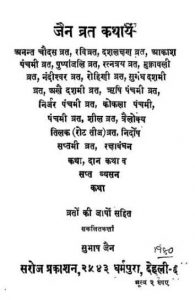 जैन व्रत कथायें
अनन्त चौदस व्रत, रविव्रत, दशलक्षण व्रत, आकाश
पंचमी व्रत, पुष्पांजलि व्रत, रत्नत्रय व्रत, मुक्तावली
व्रत, नन्दीश्वर व्रत, रोहिणी व्रत, सुगंध दशमी
व्रत, अखै दशमी व्रत, ऋषि पंचमी व्रत,
निर्जर पंचमी व्रत, कोकला पंचमी,
पंचमी व्रत, शील व्रत, त्रैलोक्य
तिलक (रोट तीज) व्रत, निर्दोष
सप्तमी व्रत, रक्षाबंधन
कथा, दान कथा व
सप्त व्यसन
कथा
व्रतों की जापों सहित
संकलितकर्त्ता
सुभाष जैन
१९८०
सरोज प्रकाशन, २५४३ धर्मपुरा, देहली-६
मूल्य २ रुपए